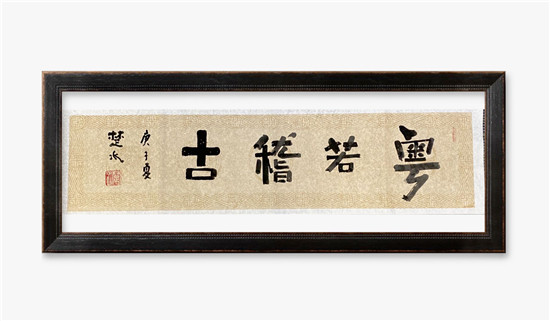 粤若稽古
庚子夏
楚